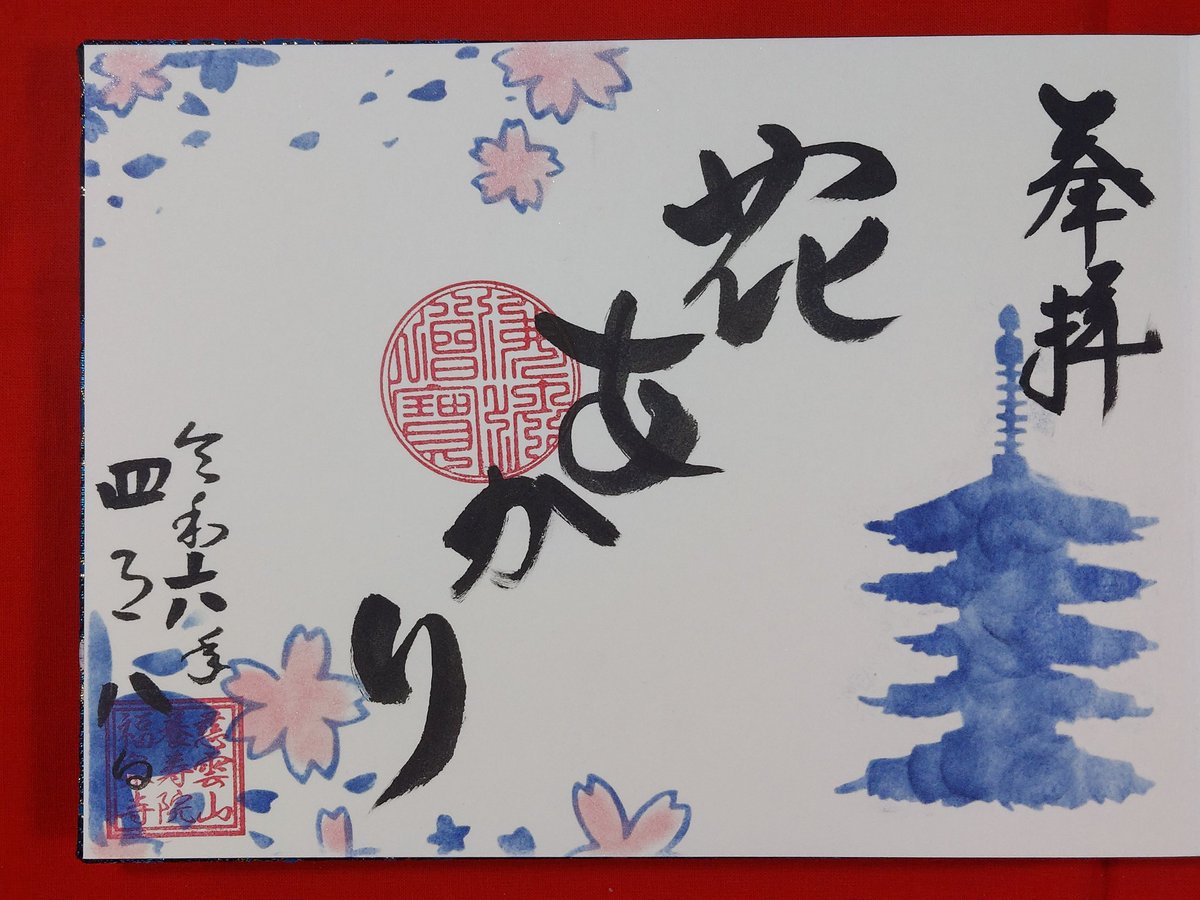 奉拝
花あかり
佛法僧寶
令和六年
四月八日
慈雲山
寿院